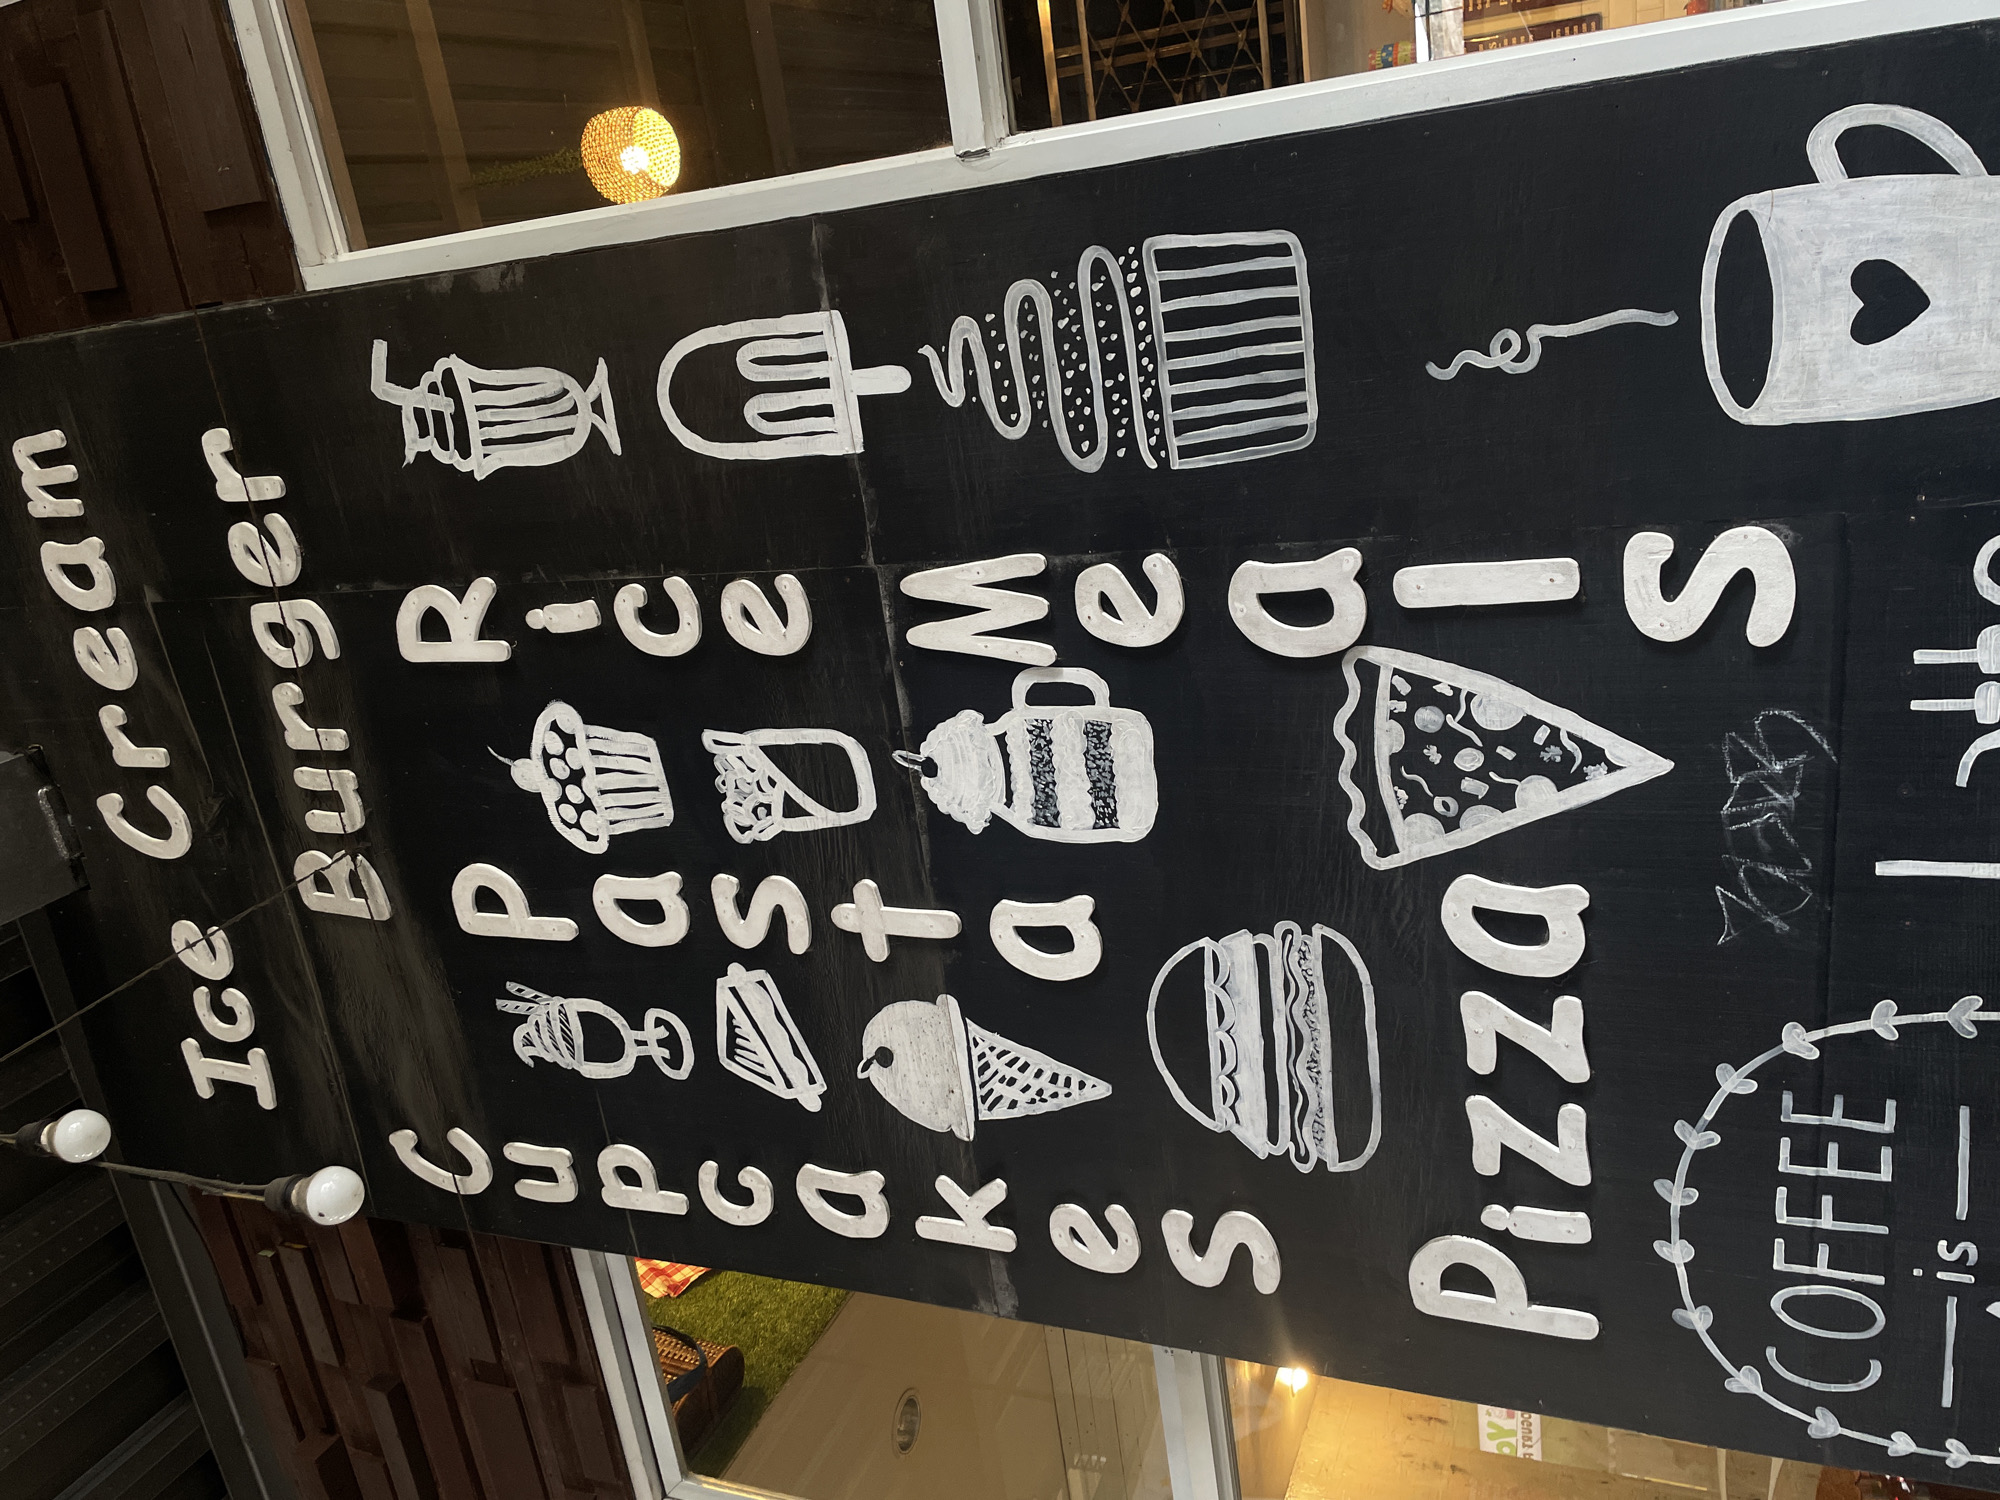 Ice Cream
Burger
Cupcakes
Pasta
Rice Meals
Pizza
COFFEE
is